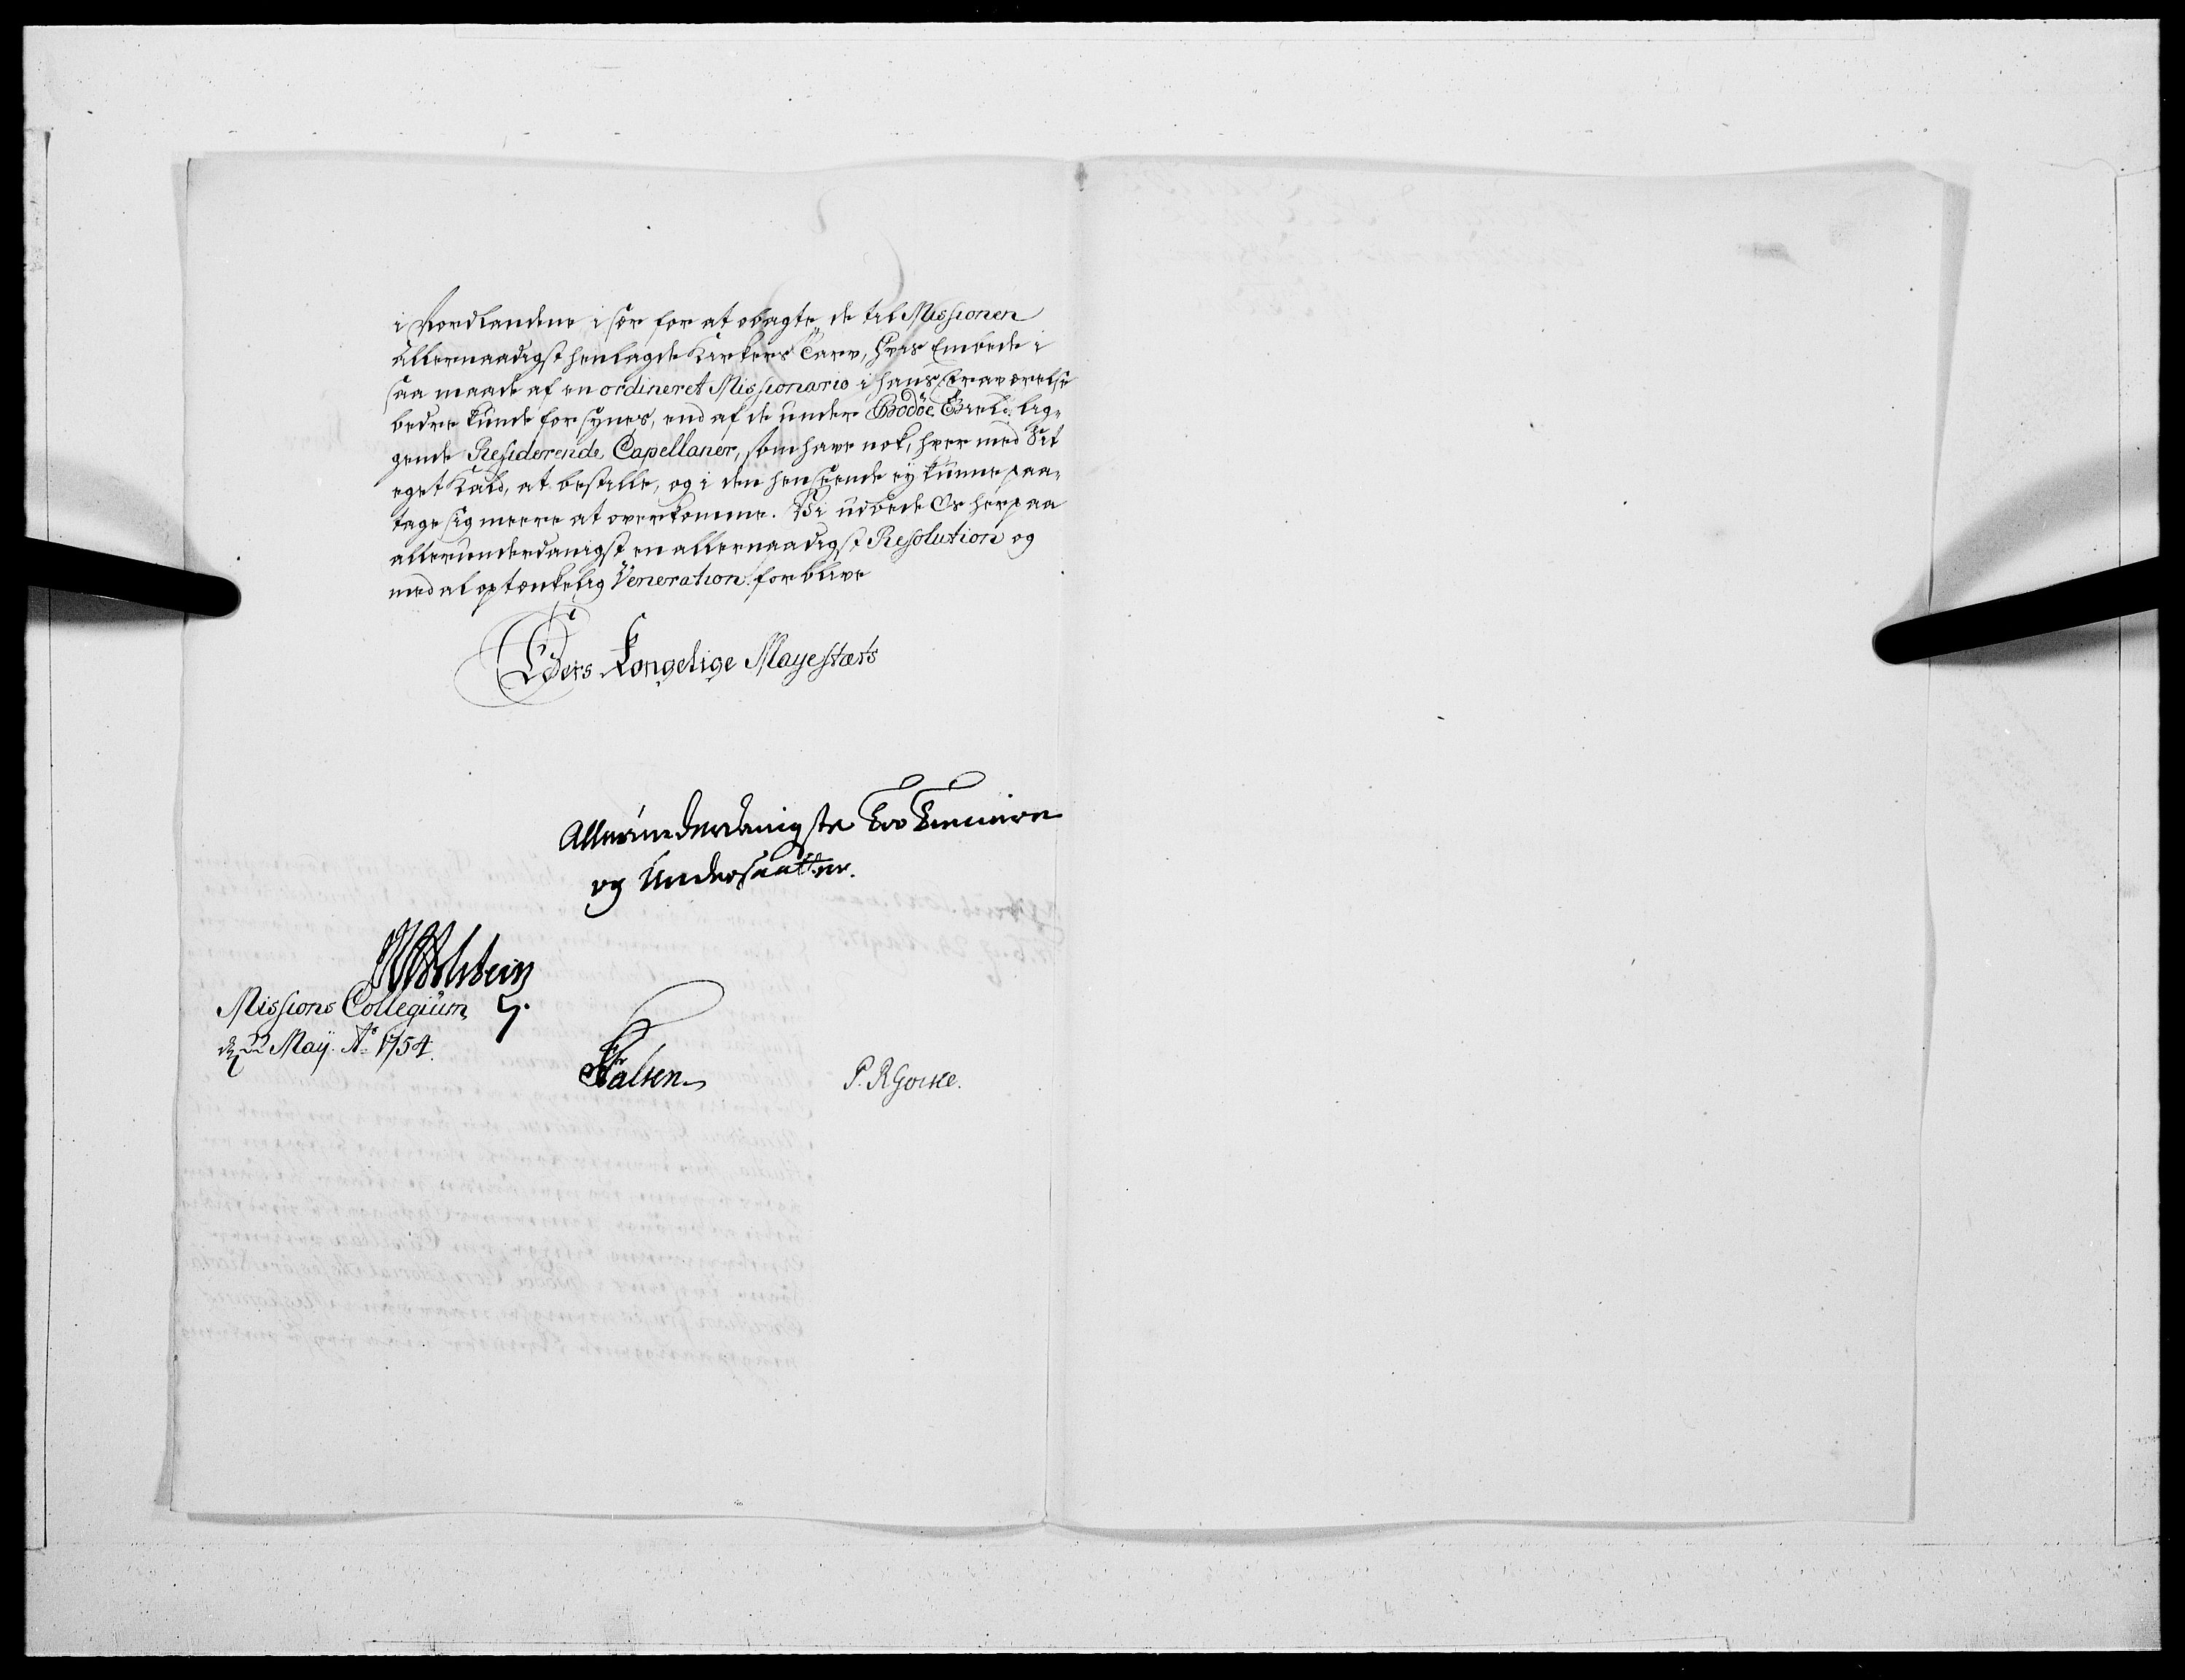 i Nordlandene i sær for at obagte de til Missionen
allernaadigst henlagde Kirkers Tarv, hvis Embede i
saa maade af en ordineret Missionario i hans fraværelse
bedre kunde forsynes, end af de under Bodöe Gield lig-
gende Residerende Capellaner, som have nok, hver med Sit
eget Kald, at bestille, og i den henseende ey kunne paa-
tage sig meere at overkomme. Vi udbede Os herpaa
allerunderdanigst en allernaadigst Resolution og
med al optænkelig Veneration forblive
Eders Kongelige Mayestæts
Allerunderdanigste Troe Tienere
og Undersaatter.
JLHolstein
Missions Collegium
d. 22 May. Ao 1754.
Falsen
P. R Goiske.